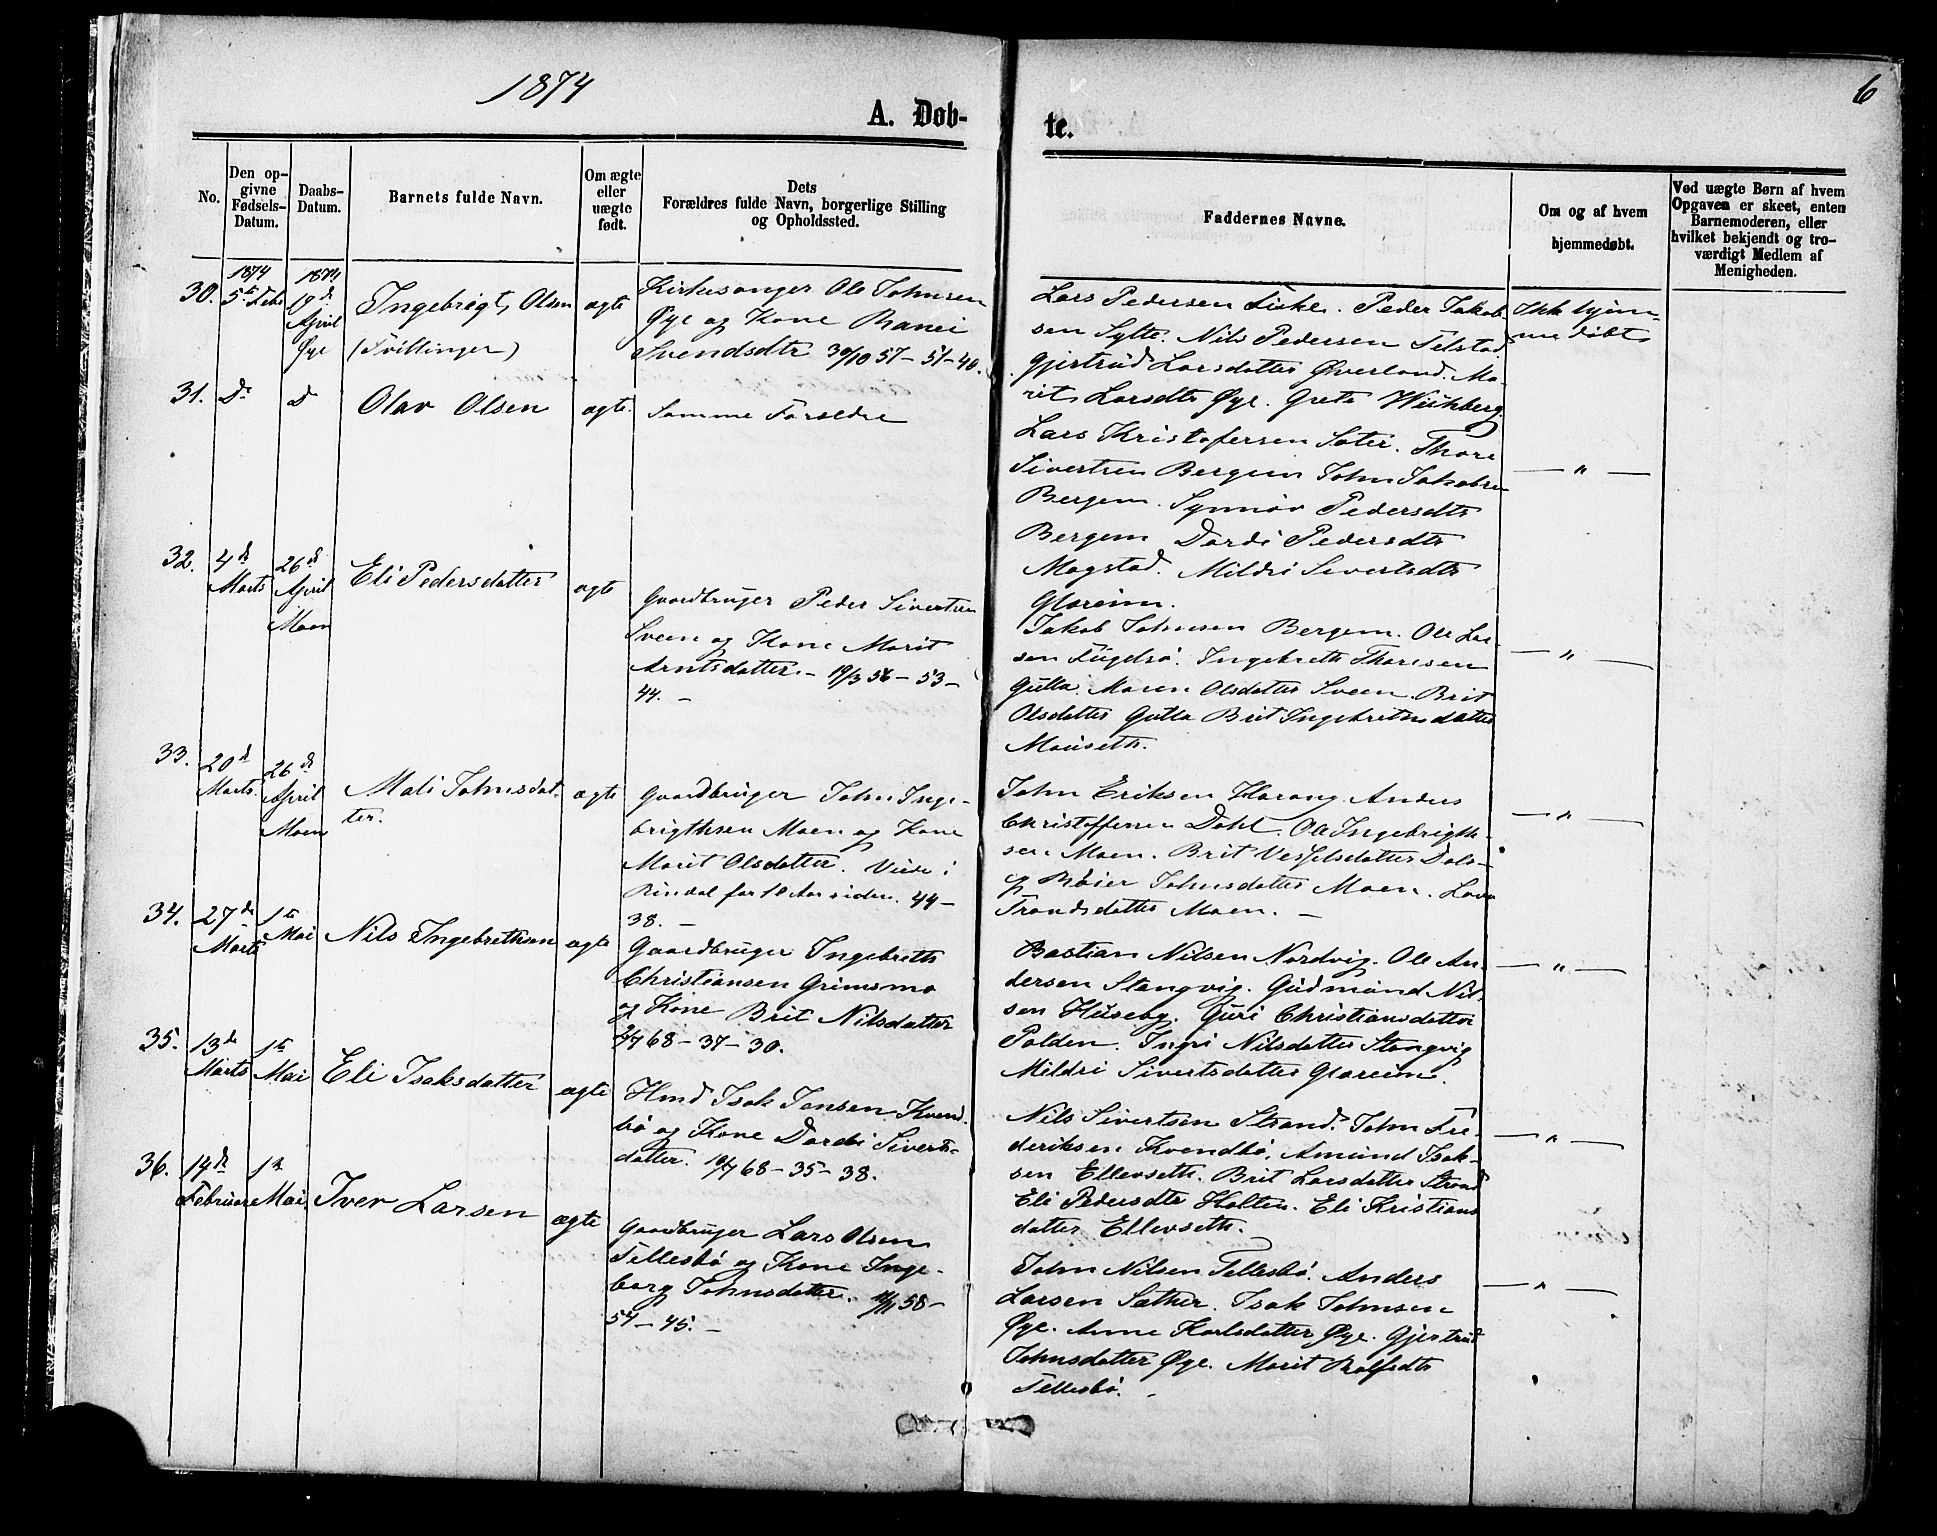 1874
6
A. Døb-
te.
No.
Den op-
givne
Fødsels-
Datum.
Daabs-
Datum.
Barnets fulde Navn.
Om ægte
eller
uægte
født.
Dets
Forældres fulde Navn, borgerlige Stilling
og Opholdssted.
Faddernes Navne.
Om og af hvem
hjemmedøbt.
Ved uægte Børn af hvem
Opgaven er skeet, enten
Barnemoderen, eller
hvilket bekjendt og tro-
værdigt Medlem af
Menigheden.
30.
1874
5te Feb
1874
April
Øye
Ingebrigt Olsen
(Tvillinger)
ægte
Kirkesanger Ole Johnsen
Øye og Kone Ranei
Svendsdtr 30/10 57 - 51 - 40.
Lars Pedersen Fiske. Peder Jakob-
sen Sylte. Nils Pedersen Telstad.
Gjertrud Larsdatter Øverland. Ma-
rit Larsdtr Øye. Grete Wichberg
Ikk hjem-
medøbt
31.
Do
D
Olav Olsen
ægte.
Samme Forældre
Lars Kristofersen Sæter. Thore
Sivertsen Bergem John Jakobsen
Bergem. Synnøv Pedersdtr
Bergem Dordi Pedersdtr
Mogstad. Mildri Sivertsdtr
Glæreim.
— " —
32.
4de
Marts
26de
April
Moen
Eli Pedersdatter
ægte
Gaardbruger Peder Sivertsen
Sveen og Kone Marit
Arntsdatter. - 19/3 56 - 53 -
44. -
Jakob Johnsen Bergem. Ole Lar-
sen Fugelsø. Ingebreth Thoresen
Gulla. Maren Olsdatter Sveen. Brit
Olsdatter Gulla Brit Ingebretsdatter
Mauseth.
— " —
33.
20de
Marts.
26de
April
Moen
Mali Johnsdat-
ter.
ægte
Gaardbruger John Inge-
brigthsen Moen og Kone
Marit Olsdatter. Viede i
Rindal for 10 Aar siden. 44 -
38. -
John Eriksen Harang. Anders
Christoffersen Dahl. Ole Ingebrigth-
sen Moen. Brit Vesselsdatter Dals-
eg Røier Johnsdatter Moen.
Trondsdatter Moen. -
— " —
34.
27de
Marts
1te
Mai
Nils Ingebrethsen
ægte
Gaardbruger Ingebreth
Christiansen Grimsmo
og Kone Brit Nilsdatter
2/7 68 - 37 - 30.
Bastian Nilsen Nordvig. Ole An-
dersen Stangvig. Gudmund Nil-
sen Huseby. Guri Christiansdatter
Polden. Ingri Nilsdatter Stangvig
Mildri Sivertsdatter Glæreim.
— " —
35.
13de
Marts
1te
Mai
Eli Isaksdatter
ægte
Hmd Isak Jensen Kvend-
bø og Kone Dordi Siverts-
datter. 10/7 68 - 35 - 38.
Nils Sivertsen Strand. John Fre-
deriksen Kvendbø. Amund Isak-
sen Ellevseth. Brit Larsdatter Strand
Eli Pedersdtr Holten. Eli Kristians
datter Ellevseth.
— " —
36.
14de
Februar
1te
Mai
Iver Larsen
ægte
Gaardbruger Lars Olsen
Tellesbø og Kone Inge-
borg Johnsdatter. 58 -
54 - 45. -
John Nilsen Tellesbø. Anders
Larsen Sæther. Isak Johnsen
Øye. Anne Karlsdatter Øye. Gjertrud
Johnsdatter Øye. Marit Rolfsdtr
Tellesbø. -
— " —